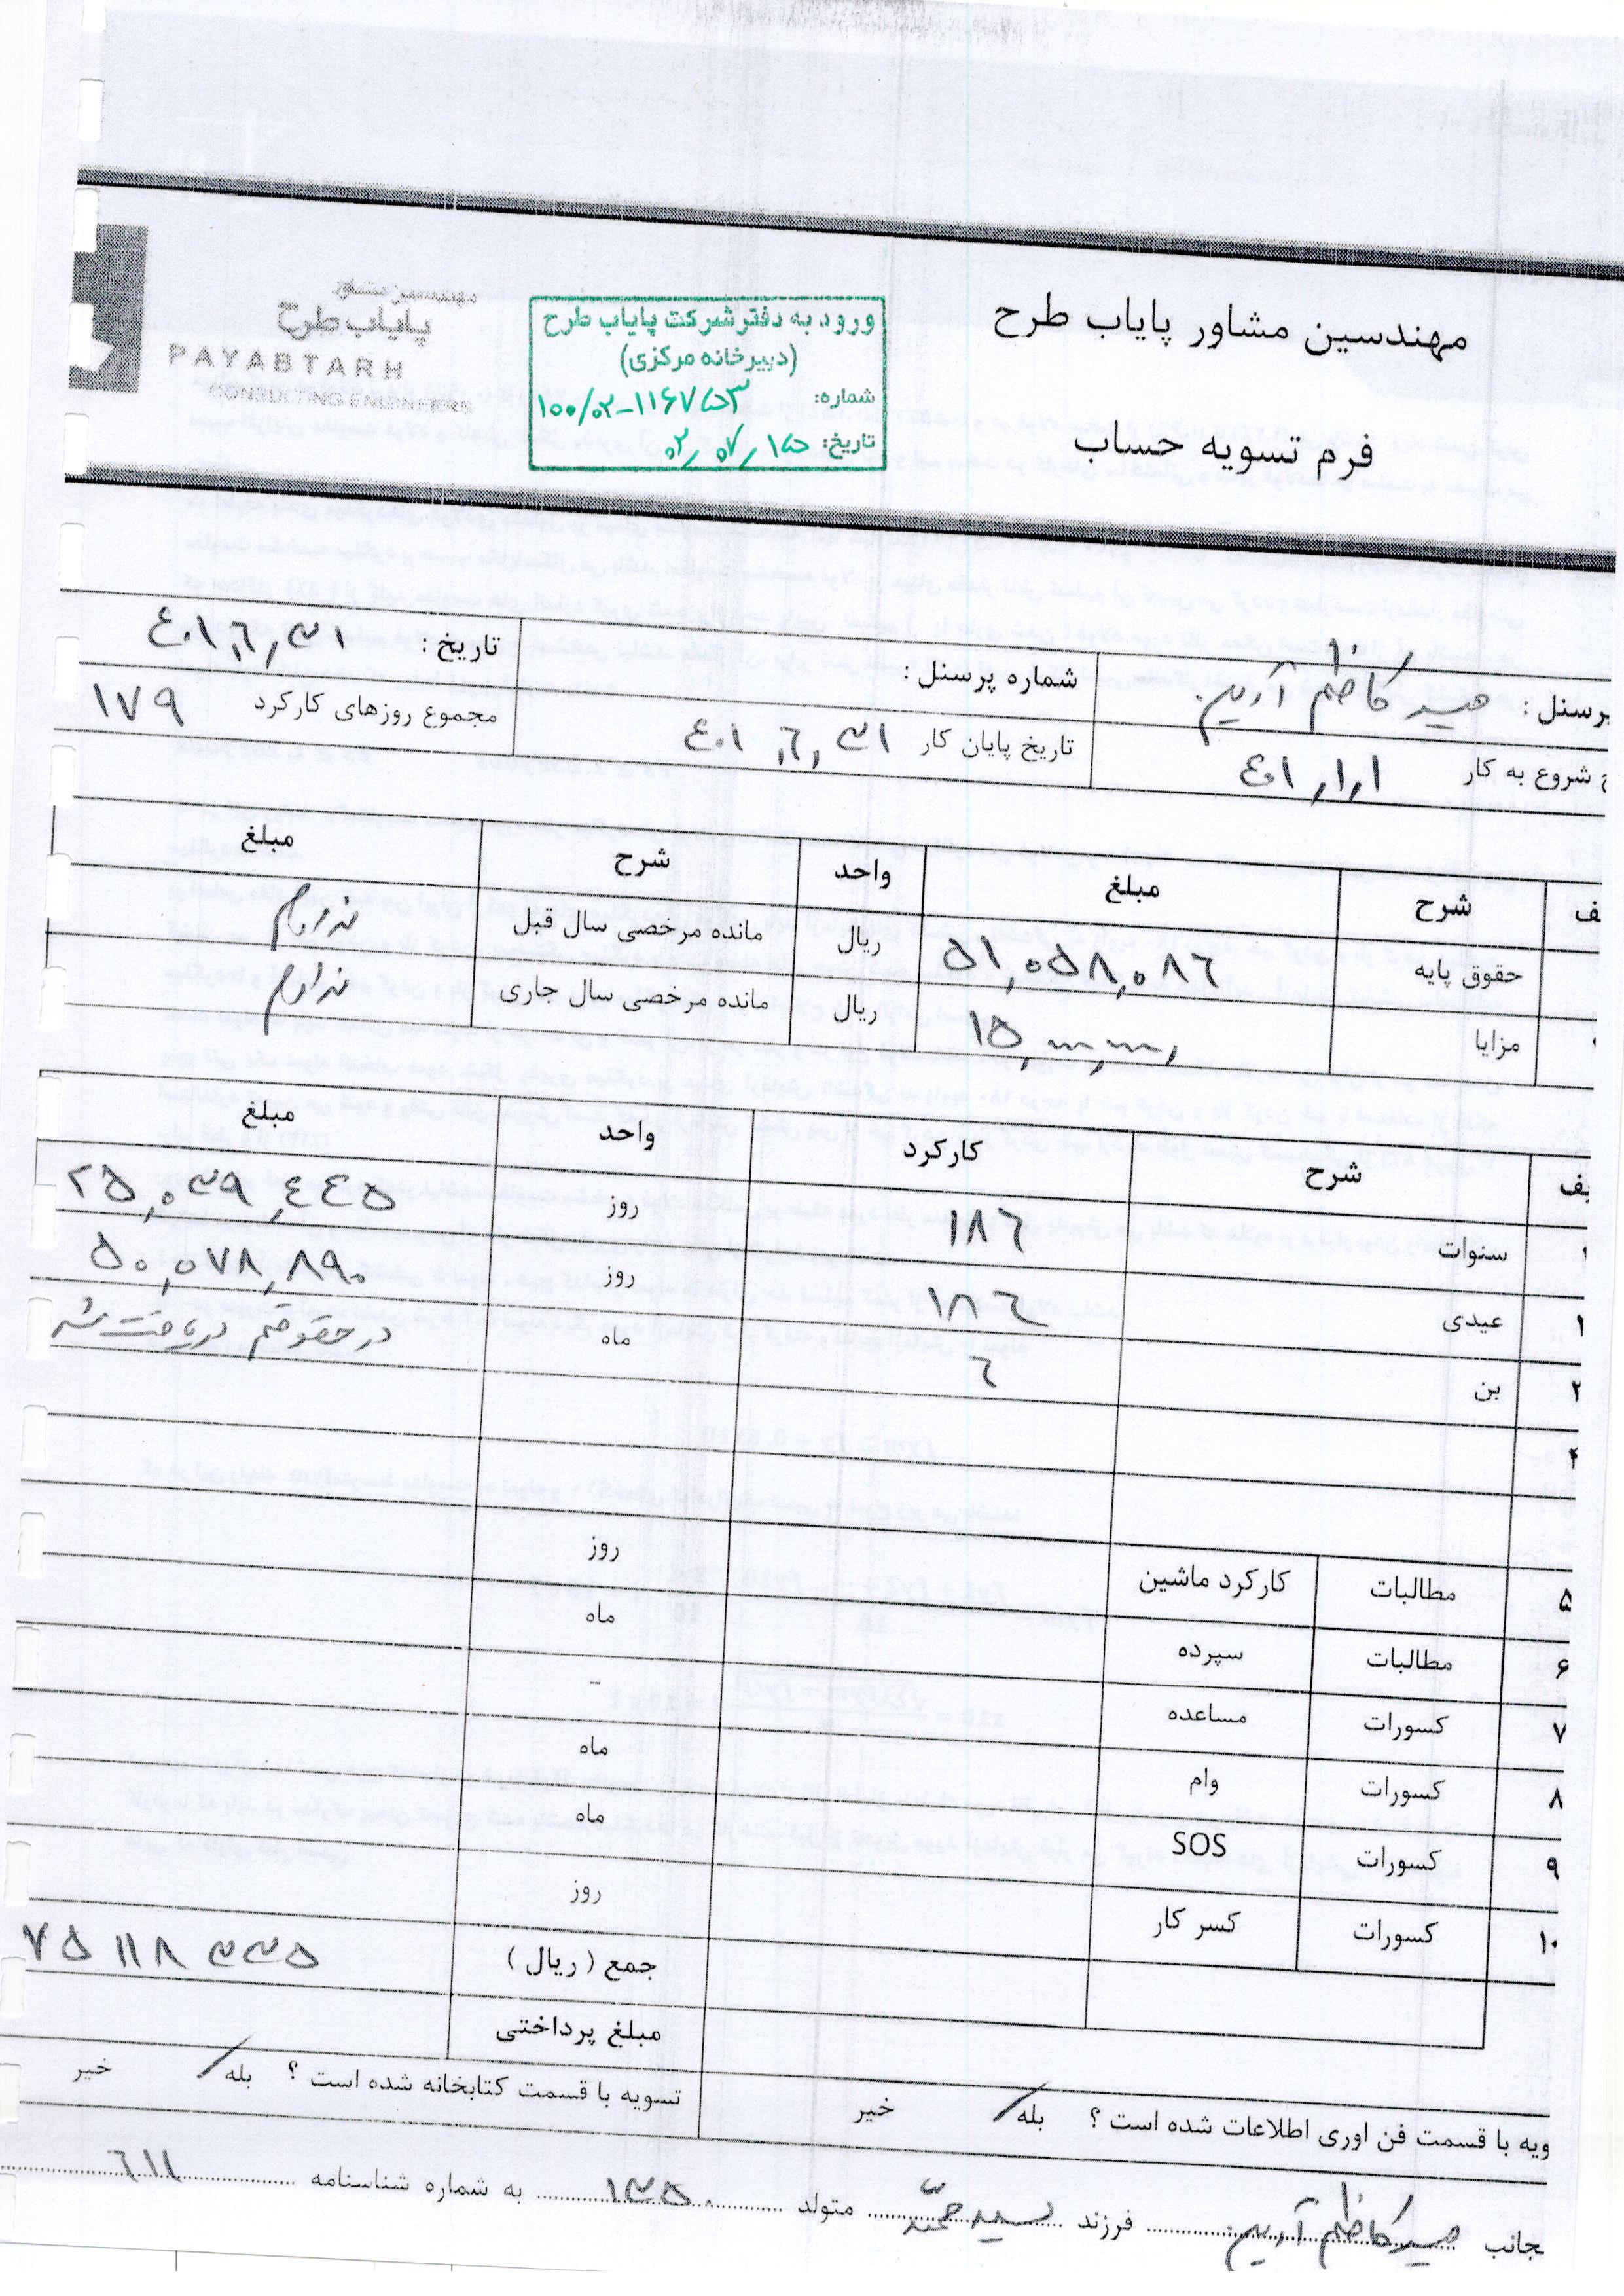 مهندسین مشاور پایاب طرح
فرم تسویه حساب
ورود به دفتر شرکت پایاب طرح
(دبیرخانه مرکزی)
شماره: ۱۰۰/۰۳-۱۱۶۷۵۳
تاریخ: ۰۳/۰۷/۱۵
پایاب طرح
PAYABTARH
CONSULTING ENGINEERS
پرسنل : سید کاظم آرین شماره پرسنل : تاریخ : ۴۰۱,۶,۳۱
شروع به کار ۴۰۱,۱,۱ تاریخ پایان کار ۴۰۱,۶,۳۱ مجموع روزهای کارکرد ۱۷۹
یف شرح مبلغ واحد شرح مبلغ
حقوق پایه ۵۱,۰۵۸,۰۸۶ ریال مانده مرخصی سال قبل ندارم
مزایا ریال مانده مرخصی سال جاری ندارم
یف شرح کارکرد واحد مبلغ
۱ سنوات ۱۸۶ روز ۲۵,۰۳۹,۴۴۵
۱ عیدی ۱۸۶ روز ۵۰,۰۷۸,۸۹۰
۲ بن ۶ ماه در حقوقم دریافت شد
۴
۵ مطالبات کارکرد ماشین روز
۶ مطالبات سپرده ماه
۷ کسورات مساعده -
۸ کسورات وام ماه
۹ کسورات SOS ماه
۱۰ کسورات کسر کار روز
جمع ( ریال ) ۷۵ ۱۱۸ ۳۳۵
مبلغ پرداختی
ویه با قسمت فن اوری اطلاعات شده است ؟ بله / خیر تسویه با قسمت کتابخانه شده است ؟ بله / خیر
جانب سید کاظم آرین فرزند سید محمد متولد ۱۳۵۰ به شماره شناسنامه ۶۱۱